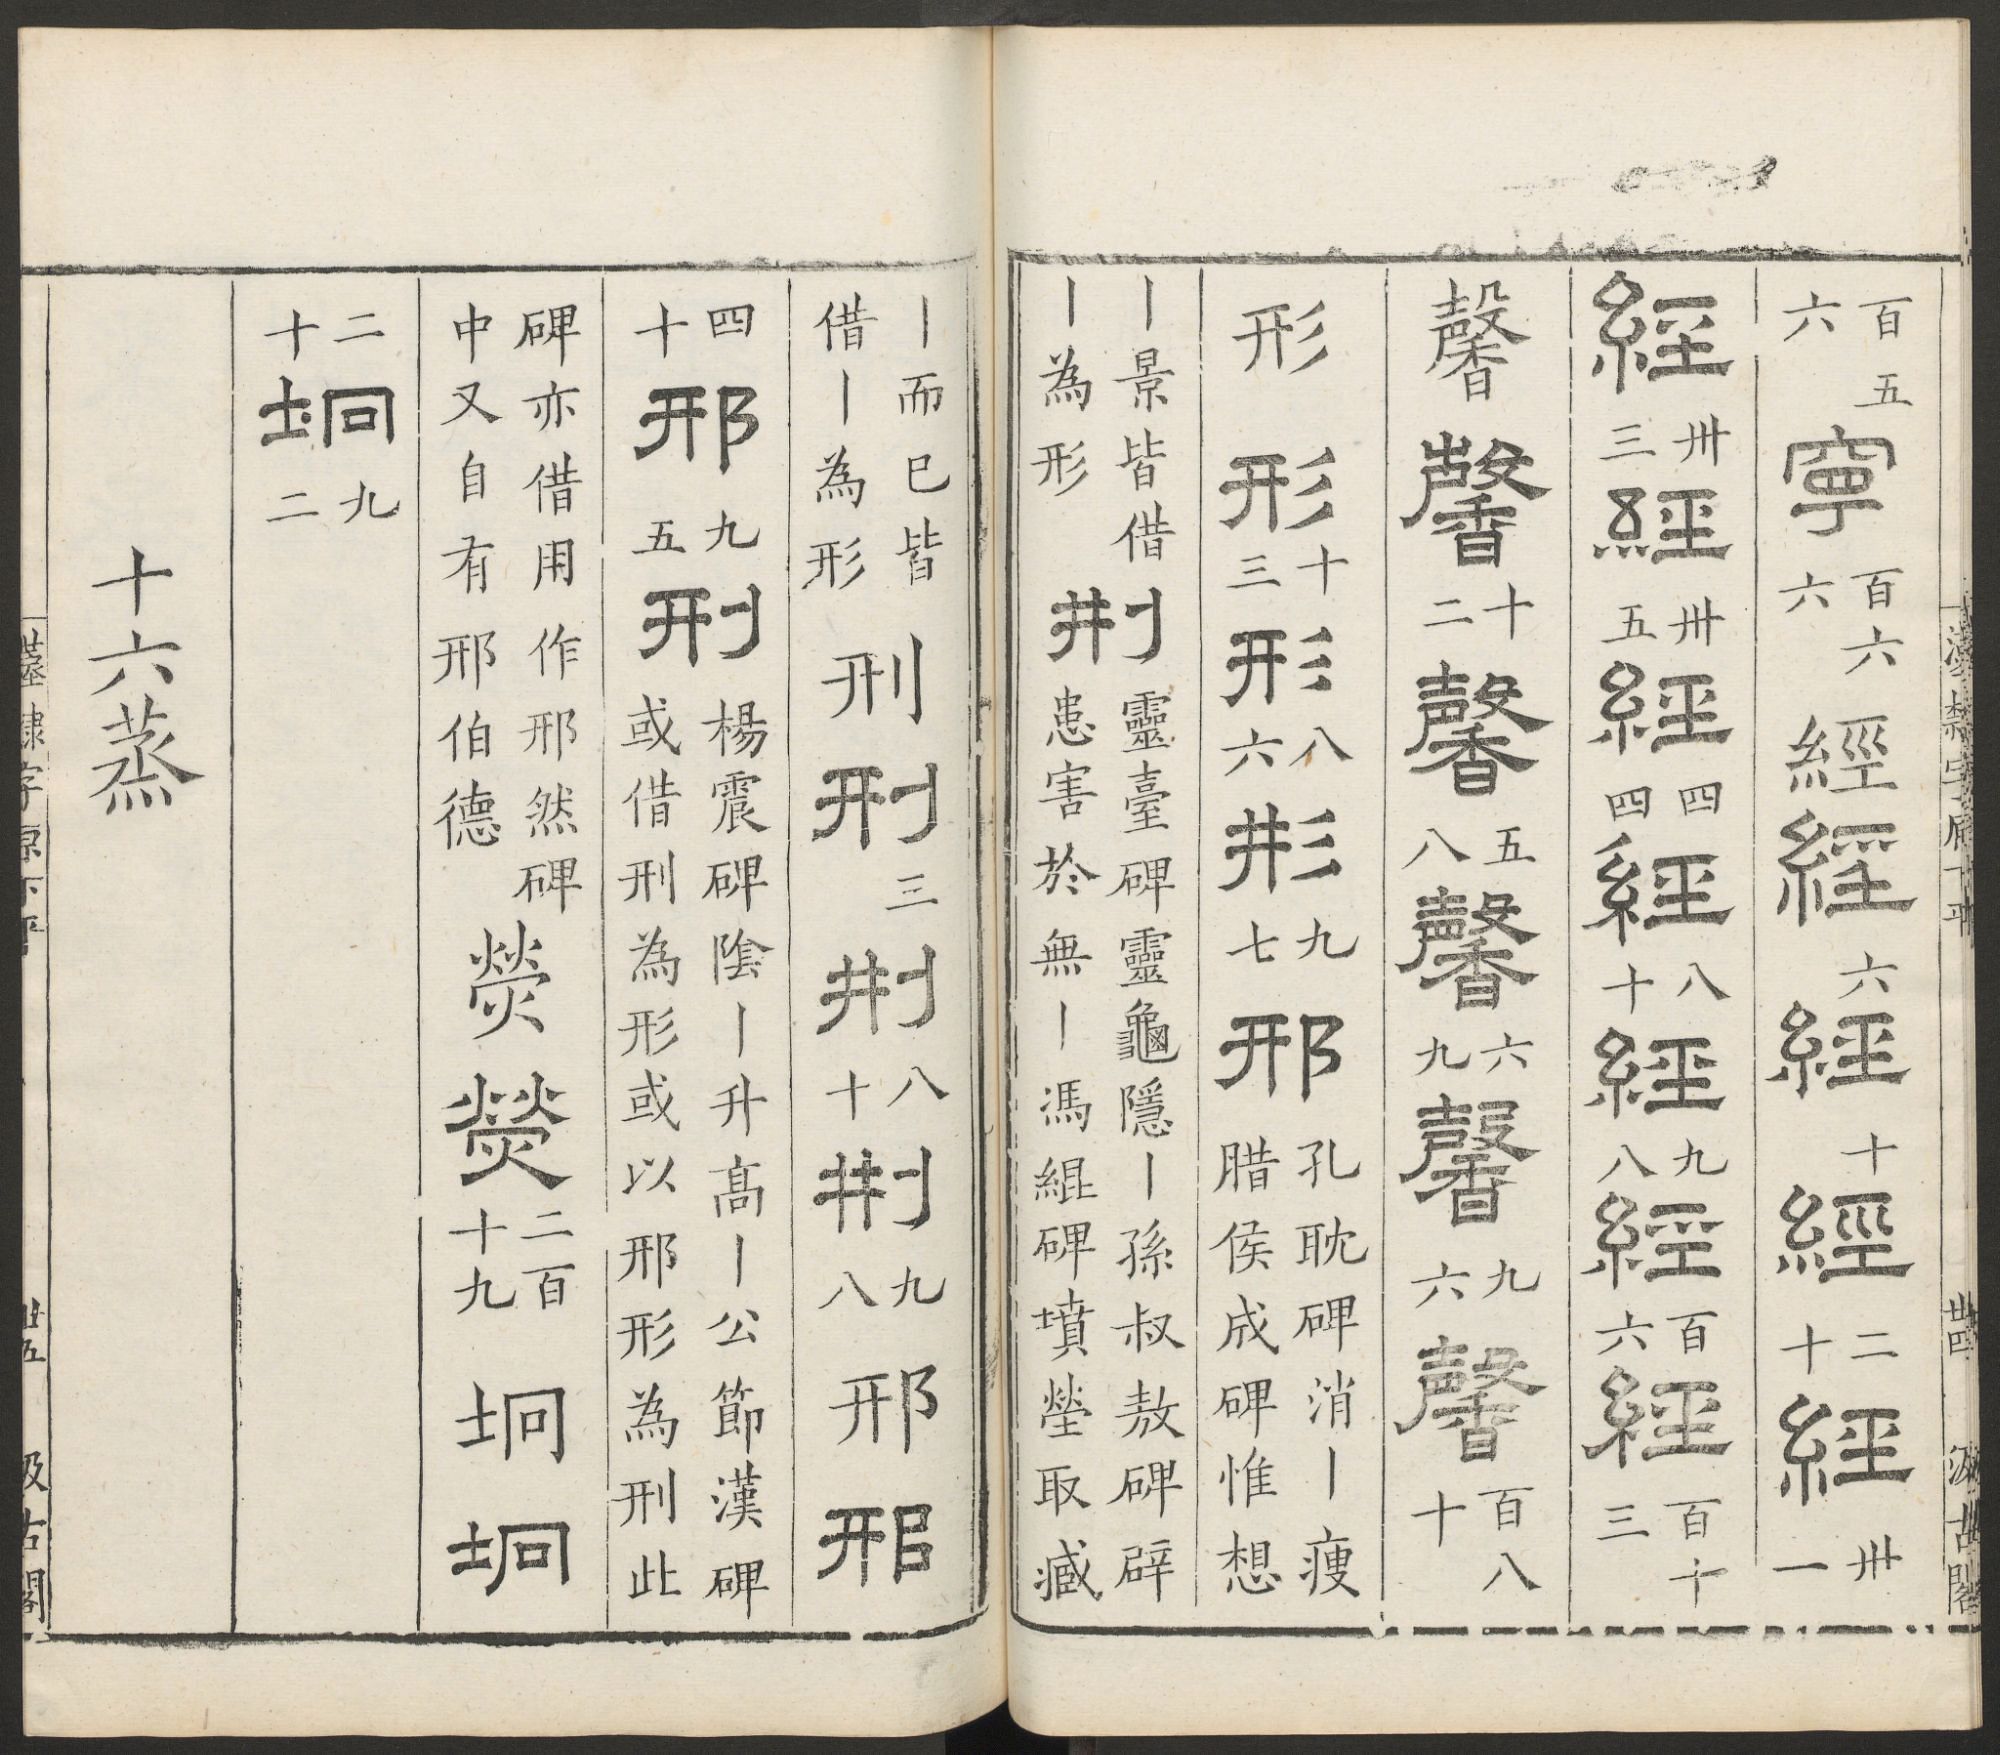 漢隸字原下平 卅四 汲古閣
百五六 寧 百六六 經 經 六 經 十 經 二十 經 卅一
經 卅三 經 卅五 經 四四 經 八十 經 九八 經 百六 經 百十三
馨 馨 十二 馨 五八 馨 六九 馨 九六 馨 百八十
形 形 十三 形 八六 形 九七 邢 孔耽碑消丨瘦腊侯成碑惟想
丨景皆借丨為形 㓝 靈臺碑靈龜隱丨孫叔敖碑辟患害於無丨馮緄碑墳塋取臧
丨而已皆借丨為形 刑 刑 三 㓝 八十 㓝 九八 邢 邢
四十 邢 九五 刑 楊震碑陰丨升髙丨公節漢碑或借刑為形或以邢形為刑此
碑亦借用作邢然碑中又自有邢伯德 熒 熒 二百十九 坰 坰
二十 坰 九二
十六蒸
漢隸字原下平 卅五 汲古閣